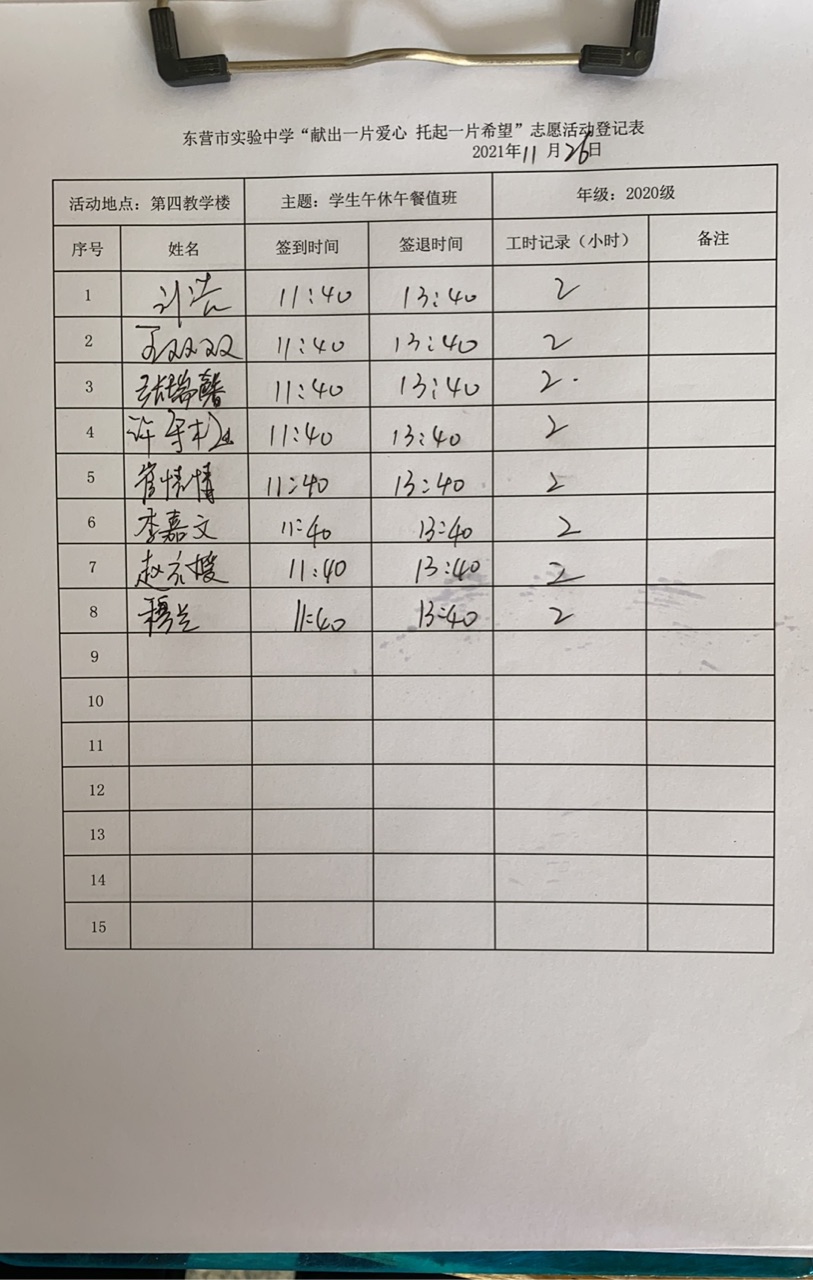 东营市实验中学“献出一片爱心 托起一片希望”志愿活动登记表
2021年11月26日
活动地点：第四教学楼 主题：学生午休午餐值班 年级：2020级
序号 姓名 签到时间 签退时间 工时记录（小时） 备注
1 刘浩 11:40 13:40 2
2 王双双 11:40 13:40 2
3 张瑞馨 11:40 13:40 2
4 许 11:40 13:40 2
5 管倩倩 11:40 13:40 2
6 李嘉文 11:40 13:40 2
7 赵 11:40 13:40 2
8 11:40 13:40 2
9
10
11
12
13
14
15